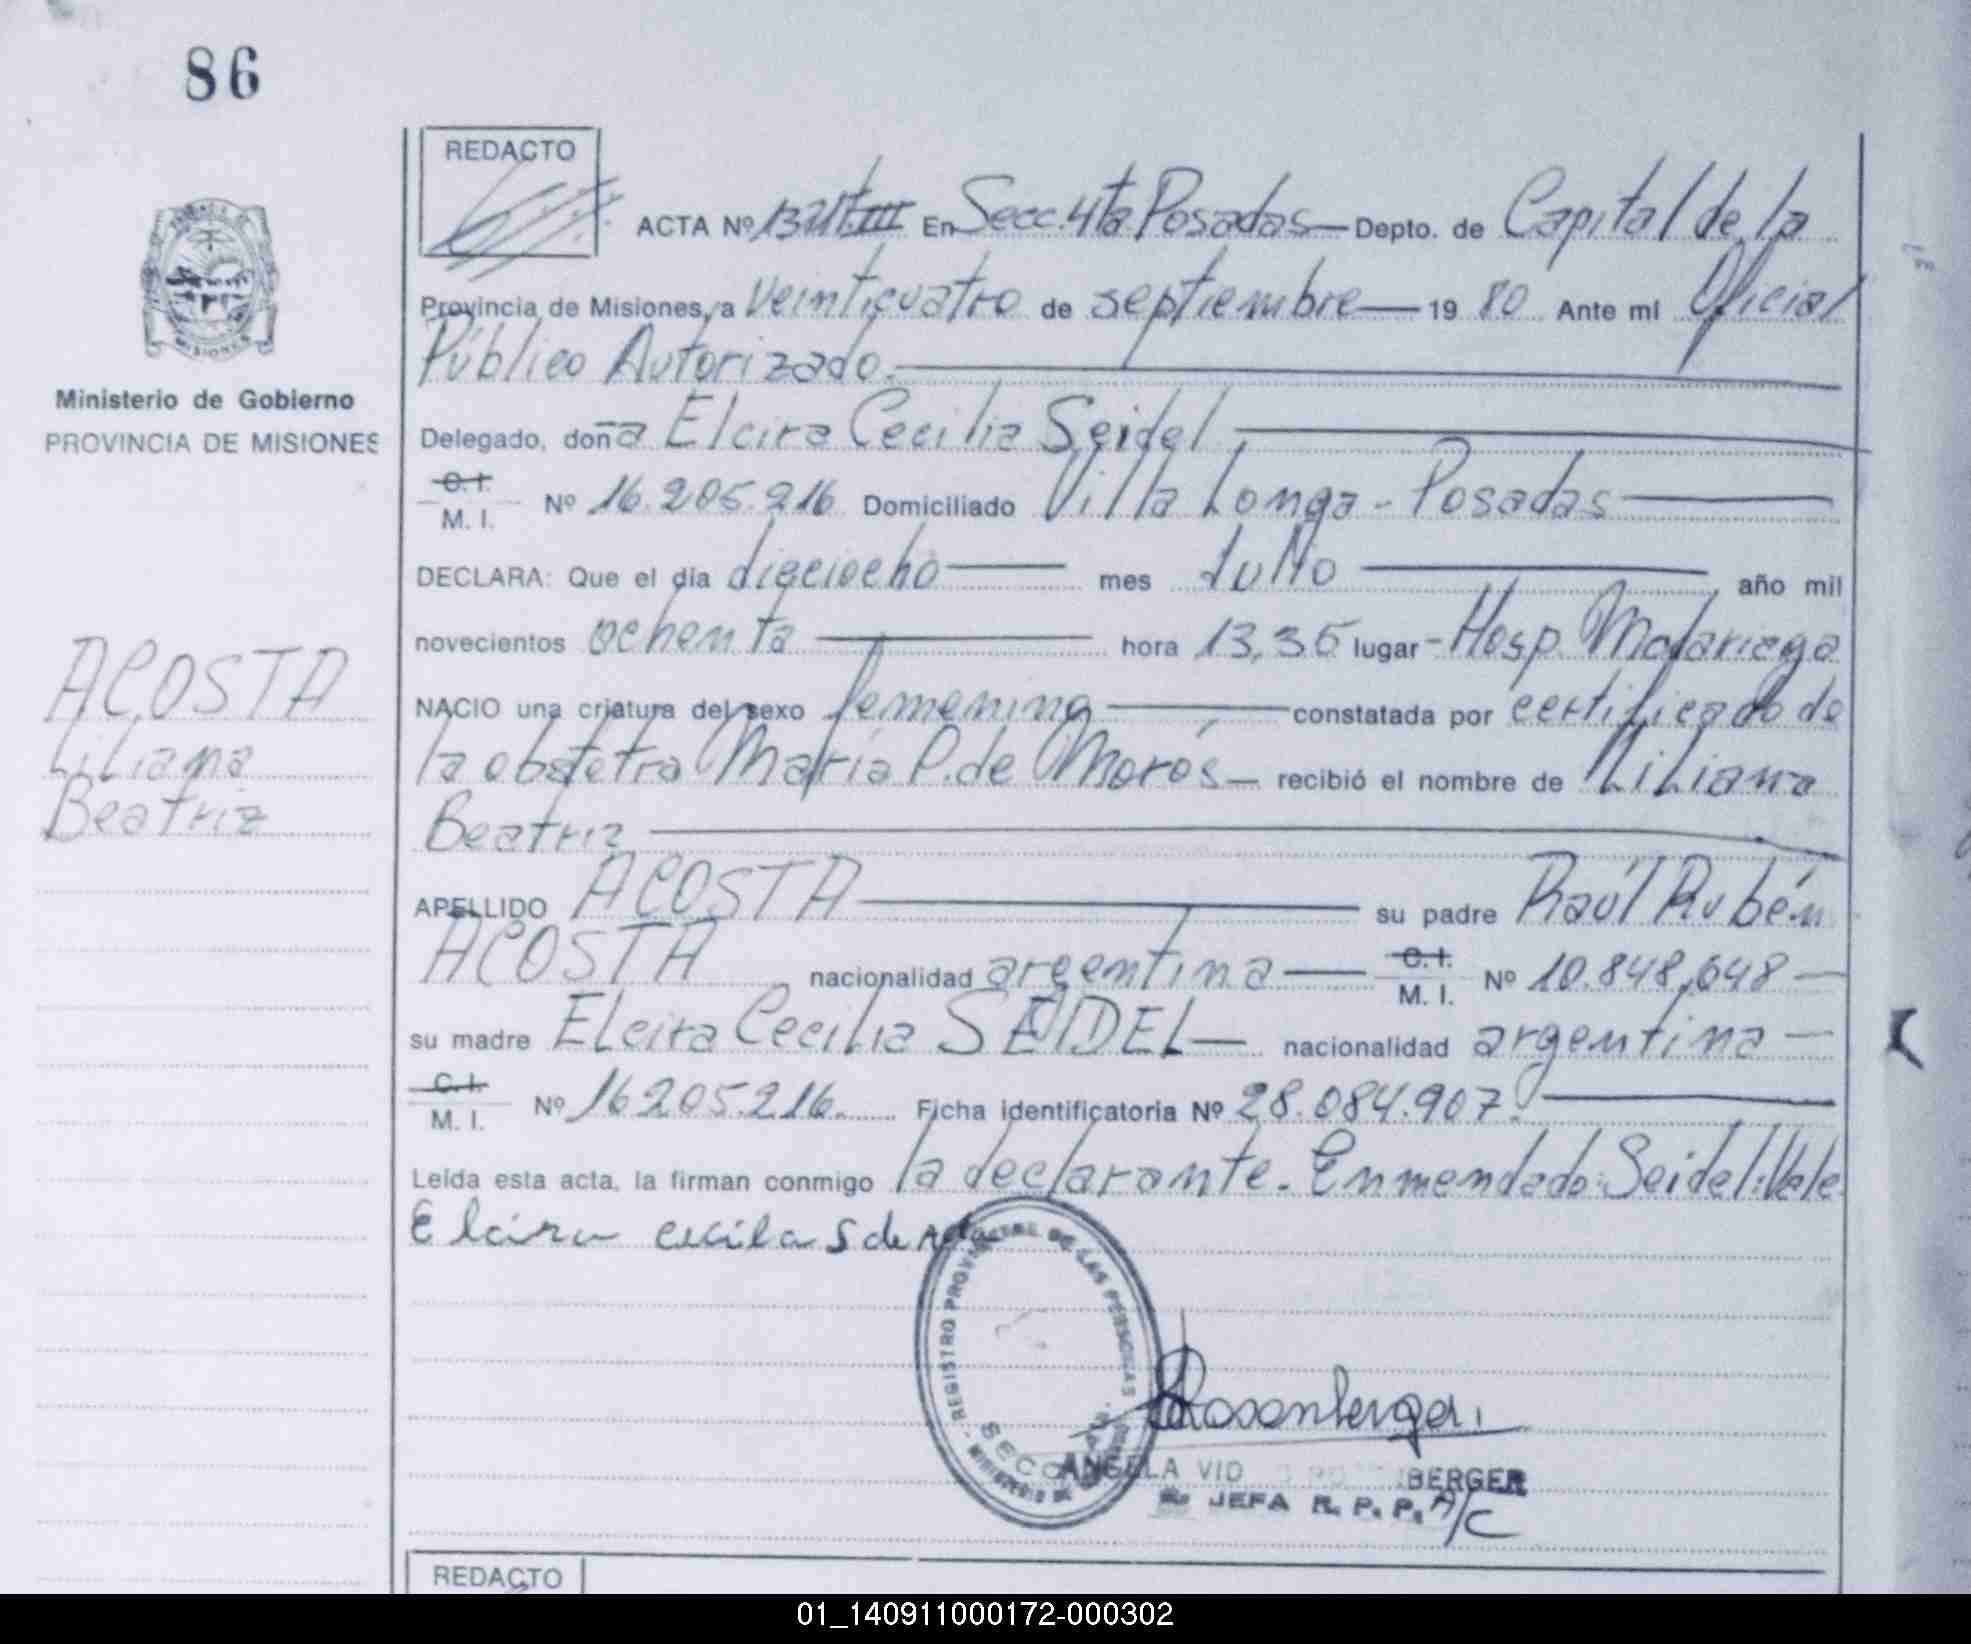 86
REDACTO
ACTA Nº 1321 t.III En Secc. 4ta Posadas — Depto. de Capital de la
Provincia de Misiones, a veinticuatro de septiembre — 19 80 Ante mi Oficial
Público Autorizado.
MISIONES
Ministerio de Gobierno
PROVINCIA DE MISIONES
Delegado, doña Elcira Cecilia Seidel
C.I.
M. I. Nº 16.205.216 Domiciliado Villa Longa - Posadas
DECLARA: Que el día dieciocho mes Julio año mil
novecientos ochenta hora 13,35 lugar - Hosp. Madariaga
NACIO una criatura del sexo femenina constatada por certificado de
la obstetra María P. de Morós — recibió el nombre de Liliana
Beatriz
ACOSTA
Liliana
Beatriz
APELLIDO ACOSTA su padre Raúl Rubén
ACOSTA nacionalidad argentina — C.I.
M. I. Nº 10.848,648 —
su madre Elcira Cecilia SEIDEL — nacionalidad argentina —
C.I.
M. I. Nº 16205.216. Ficha identificatoria Nº 28.084.907.
Leída esta acta, la firman conmigo la declarante. Enmendado: Seidel: Vale
Elcira cecila S de
REGISTRO PROVINCIAL DE LAS PERSONAS
MINISTERIO DE
SECC
Rosenberger
ANGELA VID BERGER
JEFA R. P. P. A/C
REDACTO
01_140911000172-000302